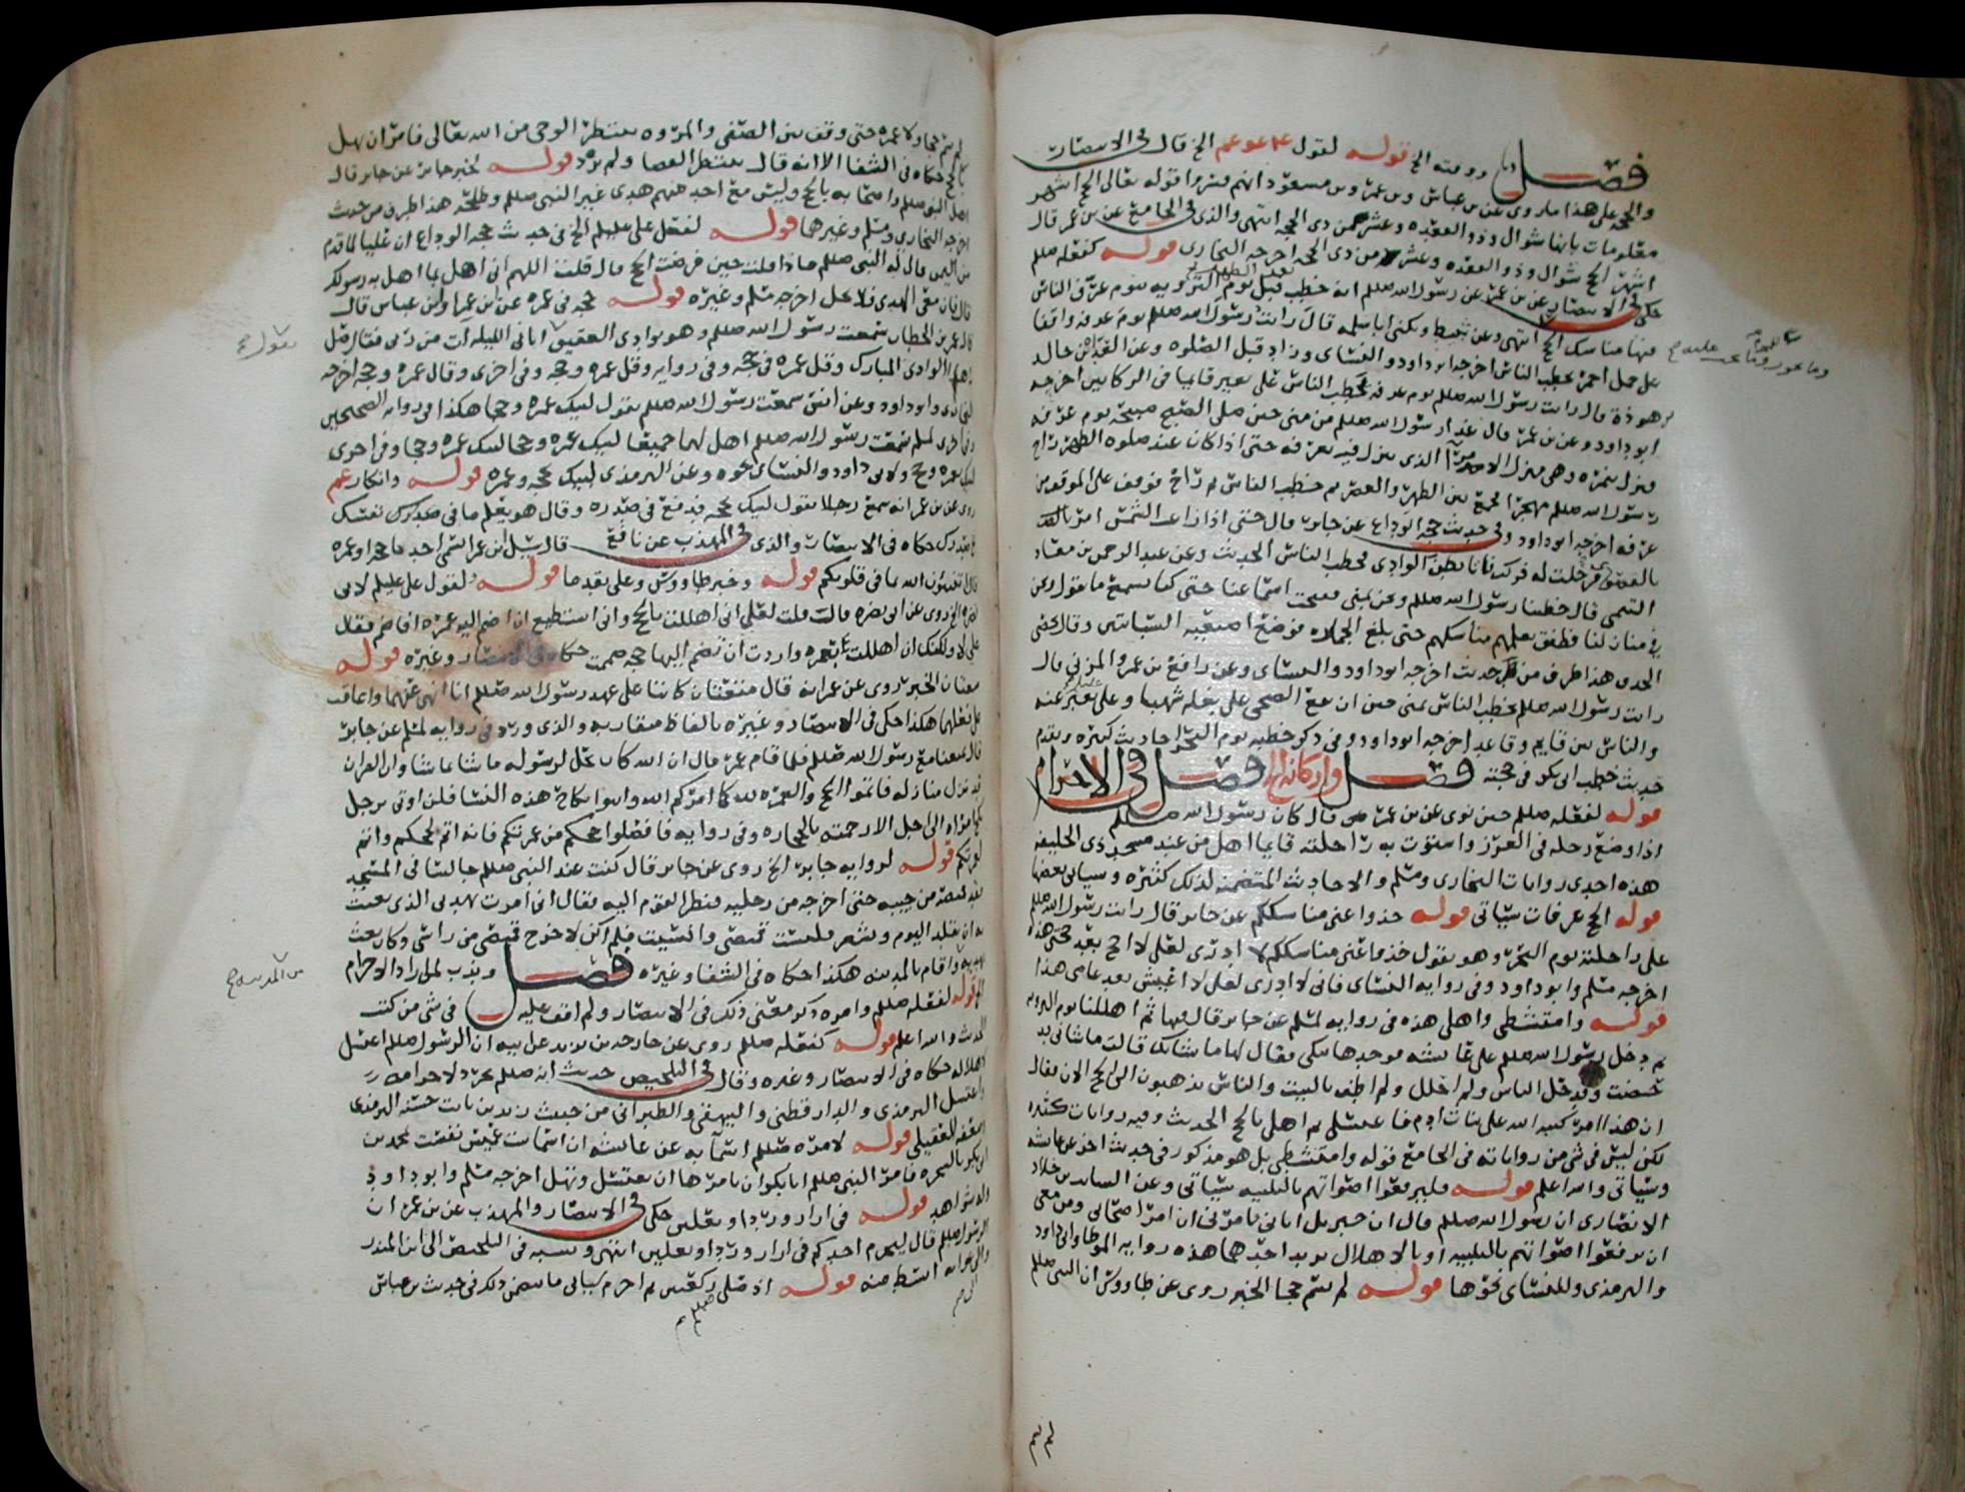 فصل ووقته الخ قوله لقول الخ قال في الانتصار
والحجة على هذا ما روي عن بن عباس وبن عمر وبن مسعود انهم فسروا قوله تعالى الحج اشهر
معلومات بانها شوال وذو القعده وعشر من ذي الحجه انتهى والذي في الجامع عن بن عمر قال
اشهر الحج شوال وذو القعده وعشر من ذي الحجه اخرجه البخاري قوله كفعله صللم
حكى في الانتصار عن بن عمر عن رسول الله صللم انه خطب قبل يوم الترويه بيوم عرف الناس
فيها مناسك الحج انتهى وعن نبيط ويكنى ابا سلمه قال رايت رسول الله صللم يوم عرفه واقفا
على جمل احمر يخطب الناس اخرجه ابو داود والنسائي وزاد قبل الصلوه وعن العدا بن خالد
بن هوذة قال رايت رسول الله صللم يوم عرفه يخطب الناس على بعير قايما في الركابين اخرجه
ابو داود وعن بن عمر قال غدا رسول الله صللم من منى حين صلى الصبح صبيحة يوم عرفه
فنزل بنمره وهي منزل الامام الذي ينزل فيه بعرفه حتى اذا كان عند صلوه الظهر راح
رسول الله صللم مهجرا فجمع بين الظهر والعصر ثم خطب الناس ثم راح فوقف على الموقف من
عرفه اخرجه ابو داود وفي حديث حجة الوداع عن جابر قال حتى اذا زاغت الشمس امر بالقصوا
فرحلت له فركب فاتا بطن الوادي فخطب الناس الحديث وعن عبد الرحمن بن معاذ
التيمي قال خطبنا رسول الله صللم ونحن بمنى ففتحت اسماعنا حتى كنا نسمع ما يقول ونحن
في منازلنا فطفق يعلمهم مناسكهم حتى بلغ الجمار فوضع اصبعيه السبابتين وقال بحصى
الحذف هذا طرف من حديث اخرجه ابو داود والنسائي وعن رافع بن عمرو المزني قال
رايت رسول الله صللم يخطب الناس بمنى حين ارتفع الضحى على بغله شهبا وعلي يعبر عنه
والناس بين قايم وقاعد اخرجه ابو داود وفي ذكر خطبه يوم النحر احاديث كثيره وتقدم
حديث خطب ابي بكر في حجته فصل واركانه الخ فصل في الاحرام
قوله لفعله صللم حين نوى عن بن عمر قال كان رسول الله صللم
اذا وضع رحله في الغرز واستوت به راحلته قايما اهل من عند مسجد ذي الحليفه
هذه احدى روايات البخاري ومسلم والاحاديث المتضمنه لذلك كثيره وسياتي بعضها
قوله الحج عرفات سياتي قوله خذوا عني مناسككم عن جابر قال رايت رسول الله صللم
على راحلته يوم النحر وهو يقول خذوا عني مناسككم لا ادري لعلي لا احج بعد حجتي هذه
اخرجه مسلم وابو داود وفي روايه النسائي فاني لا ادري لعلي لا اعيش بعد عامي هذا
قوله وامتشطي واهلي هذه في روايه لمسلم عن جابر قال فيها ثم اهللنا يوم الترويه
ثم دخل رسول الله صللم على عايشه فوجدها تبكي فقال لها ما شانك قالت ما شاني قد
حضت وقد حل الناس ولم احلل ولم اطف بالبيت والناس يذهبون الى الحج الان فقال
ان هذا امر كتبه الله على بنات ادم فاغتسلي ثم اهلي بالحج الحديث وفيه روايات كثيره
لكن ليس في شي من رواياته في الجامع قوله وامتشطي بل هو مذكور في حديث اخر عن عايشه
وسياتي والله اعلم قوله فليرفعوا اصواتهم بالتلبيه سياتي وعن السايب بن خلاد
الانصاري ان رسول الله صللم قال ان جبريل اتاني فامرني ان امر اصحابي ومن معي
ان يرفعوا اصواتهم بالتلبيه او بالاهلال يريد احدهما هذه روايه الموطا وابي داود
والترمذي وللنسائي نحوها قوله لم يسم حجا الخبر روي عن طاووس ان النبي صللم
لم يسم حجا ولا عمره حتى وقف بين الصفى والمروه ينتظر الوحي من الله تعالى فامر ان يهل
بالحج حكاه في الشفا الا انه قال ينتظر القضا ولم يزد قوله لخبر جابر عن جابر قال
اهل النبي صللم واصحابه بالحج وليس مع احد منهم هدي غير النبي صللم وطلحه هذا طرف من حديث
اخرجه البخاري ومسلم وغيرهما قوله لفعل علي عليلم الخ في حديث حجه الوداع ان عليا لما قدم
من اليمن قال له النبي صللم ماذا قلت حين فرضت الحج قال قلت اللهم اني اهل بما اهل به رسولك
قال فان معي الهدي فلا تحل اخرجه مسلم وغيره قوله حجه في عمره عن بن عمر وابن عباس قال
قال عمر بن الخطاب سمعت رسول الله صللم وهو بوادي العقيق اتاني الليله ات من ربي فقال صل
في هذا الوادي المبارك وقل عمره في حجه وفي روايه وقل عمره وحجه وفي اخرى وقال عمره وحجه اخرجه
البخاري وابو داود وعن انس سمعت رسول الله صللم يقول لبيك عمره وحجا هكذا في روايه الصحيحين
وفي اخرى لمسلم سمعت رسول الله صللم اهل بهما جميعا لبيك عمره وحجا لبيك عمره وحجا وفي اخرى
لبيك بعمره وحج ولابي داود والنسائي نحوه وعن الترمذي لبيك بحجه وعمره قوله وانكار عم
روي عن بن عمر انه سمع رجلا يقول لبيك بحجه فدفع في صدره وقال هو يعلم ما في نفسك
حكاه في الانتصار والذي في المهذب عن نافع قال سئل ابن عمر انسمي احدنا حجا او عمره
قال اتنبئون الله بما في قلوبكم قوله وخبر طاووس وعلي تقدما قوله ولقول علي عليلم لابي
نضره الخ روي عن ابي نضره قال قلت لعلي اني اهللت بالحج واني استطيع ان اضم اليه عمره افاضم فقال
علي لا ولكنك ان اهللت بعمره واردت ان تضم اليها حجه ضممت حكاه في الانتصار وغيره قوله
متعتان الخبر روي عن عمر انه قال متعتان كانتا على عهد رسول الله صللم انا انهى عنهما واعاقب
على فعلهما هكذا حكى في الانتصار وغيره بالفاظ متقاربه والذي ورد في روايه لمسلم عن جابر
قال تمتعنا مع رسول الله صللم فلما قام عمر قال ان الله كان يحل لرسوله ما شا بما شا وان القران
قد نزل منازله فاتموا الحج والعمره لله كما امركم الله وابتوا نكاح هذه النسا فلن اوتى برجل
نكح امراه الى اجل الا رجمته بالحجاره وفي روايه فافصلوا حجكم من عمرتكم فانه اتم لحجكم واتم
لعمرتكم قوله لروايه جابر الخ روي عن جابر قال كنت عند النبي صللم جالسا في المسجد
فقد قميصه من جيبه حتى اخرجه من رجليه فنظر القوم اليه فقال اني امرت ببدني الذي بعثت
به ان تقلد اليوم وتشعر فلبست قميصي ونسيت فلم اكن لاخرج قميصي من راسي وكان بعث
ببدنه واقام بالمدينه هكذا حكاه في الشفا وغيره فصل ويندب لمن اراد الاحرام
الخ قوله لفعله صللم وامره ذكر معنى ذلك في الانتصار ولم اقف عليه في شي من كتب
الحديث والله اعلم قوله كفعله صللم روي عن خارجه بن زيد عن ابيه ان الرسول صللم اغتسل
لاهلاله حكاه في الانتصار وغيره وقال في التلخيص حديث انه صللم تجرد لاحرامه
واغتسل الترمذي والدار قطني والبيهقي والطبراني من حديث زيد بن ثابت حسنه الترمذي
وضعفه العقيلي قوله لامره صللم اسما به عن عايشه ان اسما بنت عميس نفست بمحمد بن
ابي بكر بالشجره فامر النبي صللم ابا بكر ان يامرها ان تغتسل وتهل اخرجه مسلم وابو داود
وله شواهد قوله في ازار وردا ونعلين حكى في الانتصار والمهذب عن بن عمر ان
الرسول صللم قال ليحرم احدكم في ازار وردا ونعلين انتهى ونسبه في التلخيص الى ابن المنذر
اسقط منه قوله اذ صلى ركعتين ثم احرم سياتي ما يتضمن ذلك في حديث بن عباس